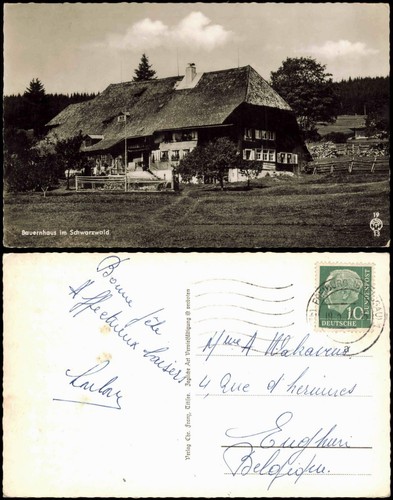 Bauernhaus im Schwarzwald
19
13
Bonne fête
Affectueux baisers
Verlag Chr. Franz, Titisee. Jegliche Art Vervielfältigung @ verboten
DEUTSCHE BUNDESPOST
10
FREIBURG
Mme A
4, Rue d'hérinnes
Enghien
Belgique.